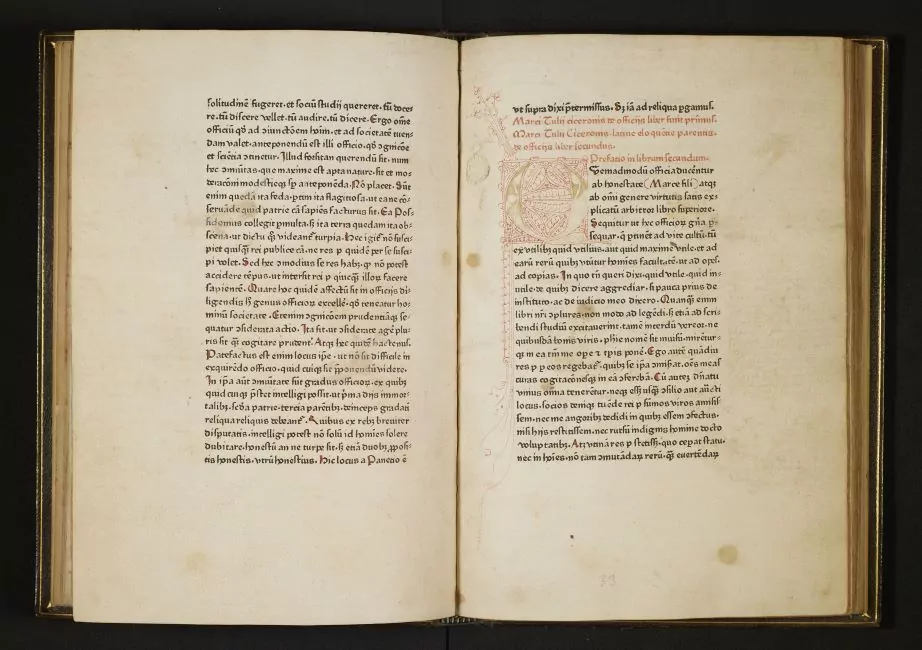 solitudinē fugeret·et sociū studij quereret·tū doce-
re·tū discere vellet·tū audire·tū dicere·Ergo om̄e
officiū qḋ ad ↄiunctōem hoīm·et ad societatē tuen-
dam valet·anteponendū est illi officio·qḋ ↄgnicōe
et sciētia ↄtinetur·Illud forsitan querendū sit·num
hec ↄmūitas·que maxime est apta nature·sit et mo-
deracōni modestieqꝫ sꝑ anteponēda·Nō placet·Sūt
enim quedā ita feda·ꝑtim ita flagitiosa·ut ea ne cō-
seruāde quid patrie cā sapiēs facturus sit·Ea Pos-
sidonius collegit pmulta·sꝫ ita tetra quedam ita ob-
scena·ut dictu qꝫ videant᷑ turpia·Hec igit᷑ nō susci-
piet quisqꝫ rei publice cā·ne res p quidē per se susci-
pi volet·Sed hec ↄmodius se res habꝫ·ꝙ nō potest
accidere tēpus·ut intersit rei p quicqꝫ illoꝝ facere
sapientē·Quare hoc quidē affectū sit in officijs di-
ligendis hꝫ genus officioꝝ excelle·qḋ teneatur ho-
minū societate·Etenim ↄgnicōem prudentiāqꝫ se-
quatur ↄsiderata actio·Ita fit·ut ↄsiderate agē plu-
ris sit qꝫ cogitare prudent᷑·Atqꝫ hec quidē hactenus·
Patefactus est enim locus ip̄e·ut nō sit difficile in
exquirēdo officio·quid cuiqꝫ sit p̄ponendū videre·
In ip̄a aūt ↄmūitate sūt gradus officioꝝ·ex quibꝫ
quid cuiqꝫ p̄stet intelligi possit·ut pͥma dijs immor-
talibꝫ·scḋa patrie·tercia parētibꝫ·deinceps gradatī
reliqua reliquis debeant᷑·Quibus ex rebꝫ breuiter
disputatis·intelligi potest nō solū id homīes solere
dubitare·honestū an ne turpe sit·sꝫ etiā duobꝫ ꝓpos-
tis honestis·vtrū honestius·Hic locus a Panecio ē
vt supra dixi p̄termissus·Sꝫ iā ad reliqua pgamus·
Marci Tulij ciceronis de officijs liber finit primus·
Marci Tulij Ciceronis·latine eloquētie parentis·
de officijs liber secundus·
Prefatio in librum secundum·
Quemadmodū officia ducentur
ab honestate (Marce fili) atqꝫ
ab omi genere virtutis satis ex-
plicatū arbitror libro superiore·
Sequitur ut hec officioꝝ gn̄a p-
sequar·q̄ ptinēt ad vite cultū·tū
ex vtilibꝫ quid vtilius·aut quid maxime vtile·et ad
earū rerū quibꝫ vtūtur homīes facultatē·ut ad opes·
ad copias·In quo tn̄ queri dixi·quid vtile·quid in-
utile·de quibꝫ dicere aggrediar·si pauca prius de
instituto·ac de iudicio meo dixero·Quanqꝫ enim
libri nr̄i ↄplures·non modo ad legēdi·sꝫ etiā ad scri-
bendi studiū excitauerint·tamē interdū vereor·ne
quibusdā bonis viris·phie nomē sit inuisū·mirētur-
qꝫ in ea tm̄ me ope ⁊ tpis ponē·Ego aūt quādiu
res p p eos regebat᷑·quibꝫ se ipa ↄmisat·oēs meas
curas cogitacōnesqꝫ in eā ↄferebā·Cū autē dn̄atu
vnius omīa tenerētur·neqꝫ eēt usqꝫ ↄsilio aut auct̄i
locus·socios deniqꝫ tuēde rei p sūmos viros amisis-
sem·nec me angoribꝫ dedidi in quibꝫ essem ↄfectus·
nisi his restitissem·nec rursū indignis homine docto
voluptatibꝫ·Atqꝫ vtinā res p stetiss·quo cepat statu·
nec in hoīes·nō tam ↄmutādaꝝ rerū·qꝫ euertēdaꝝ
33